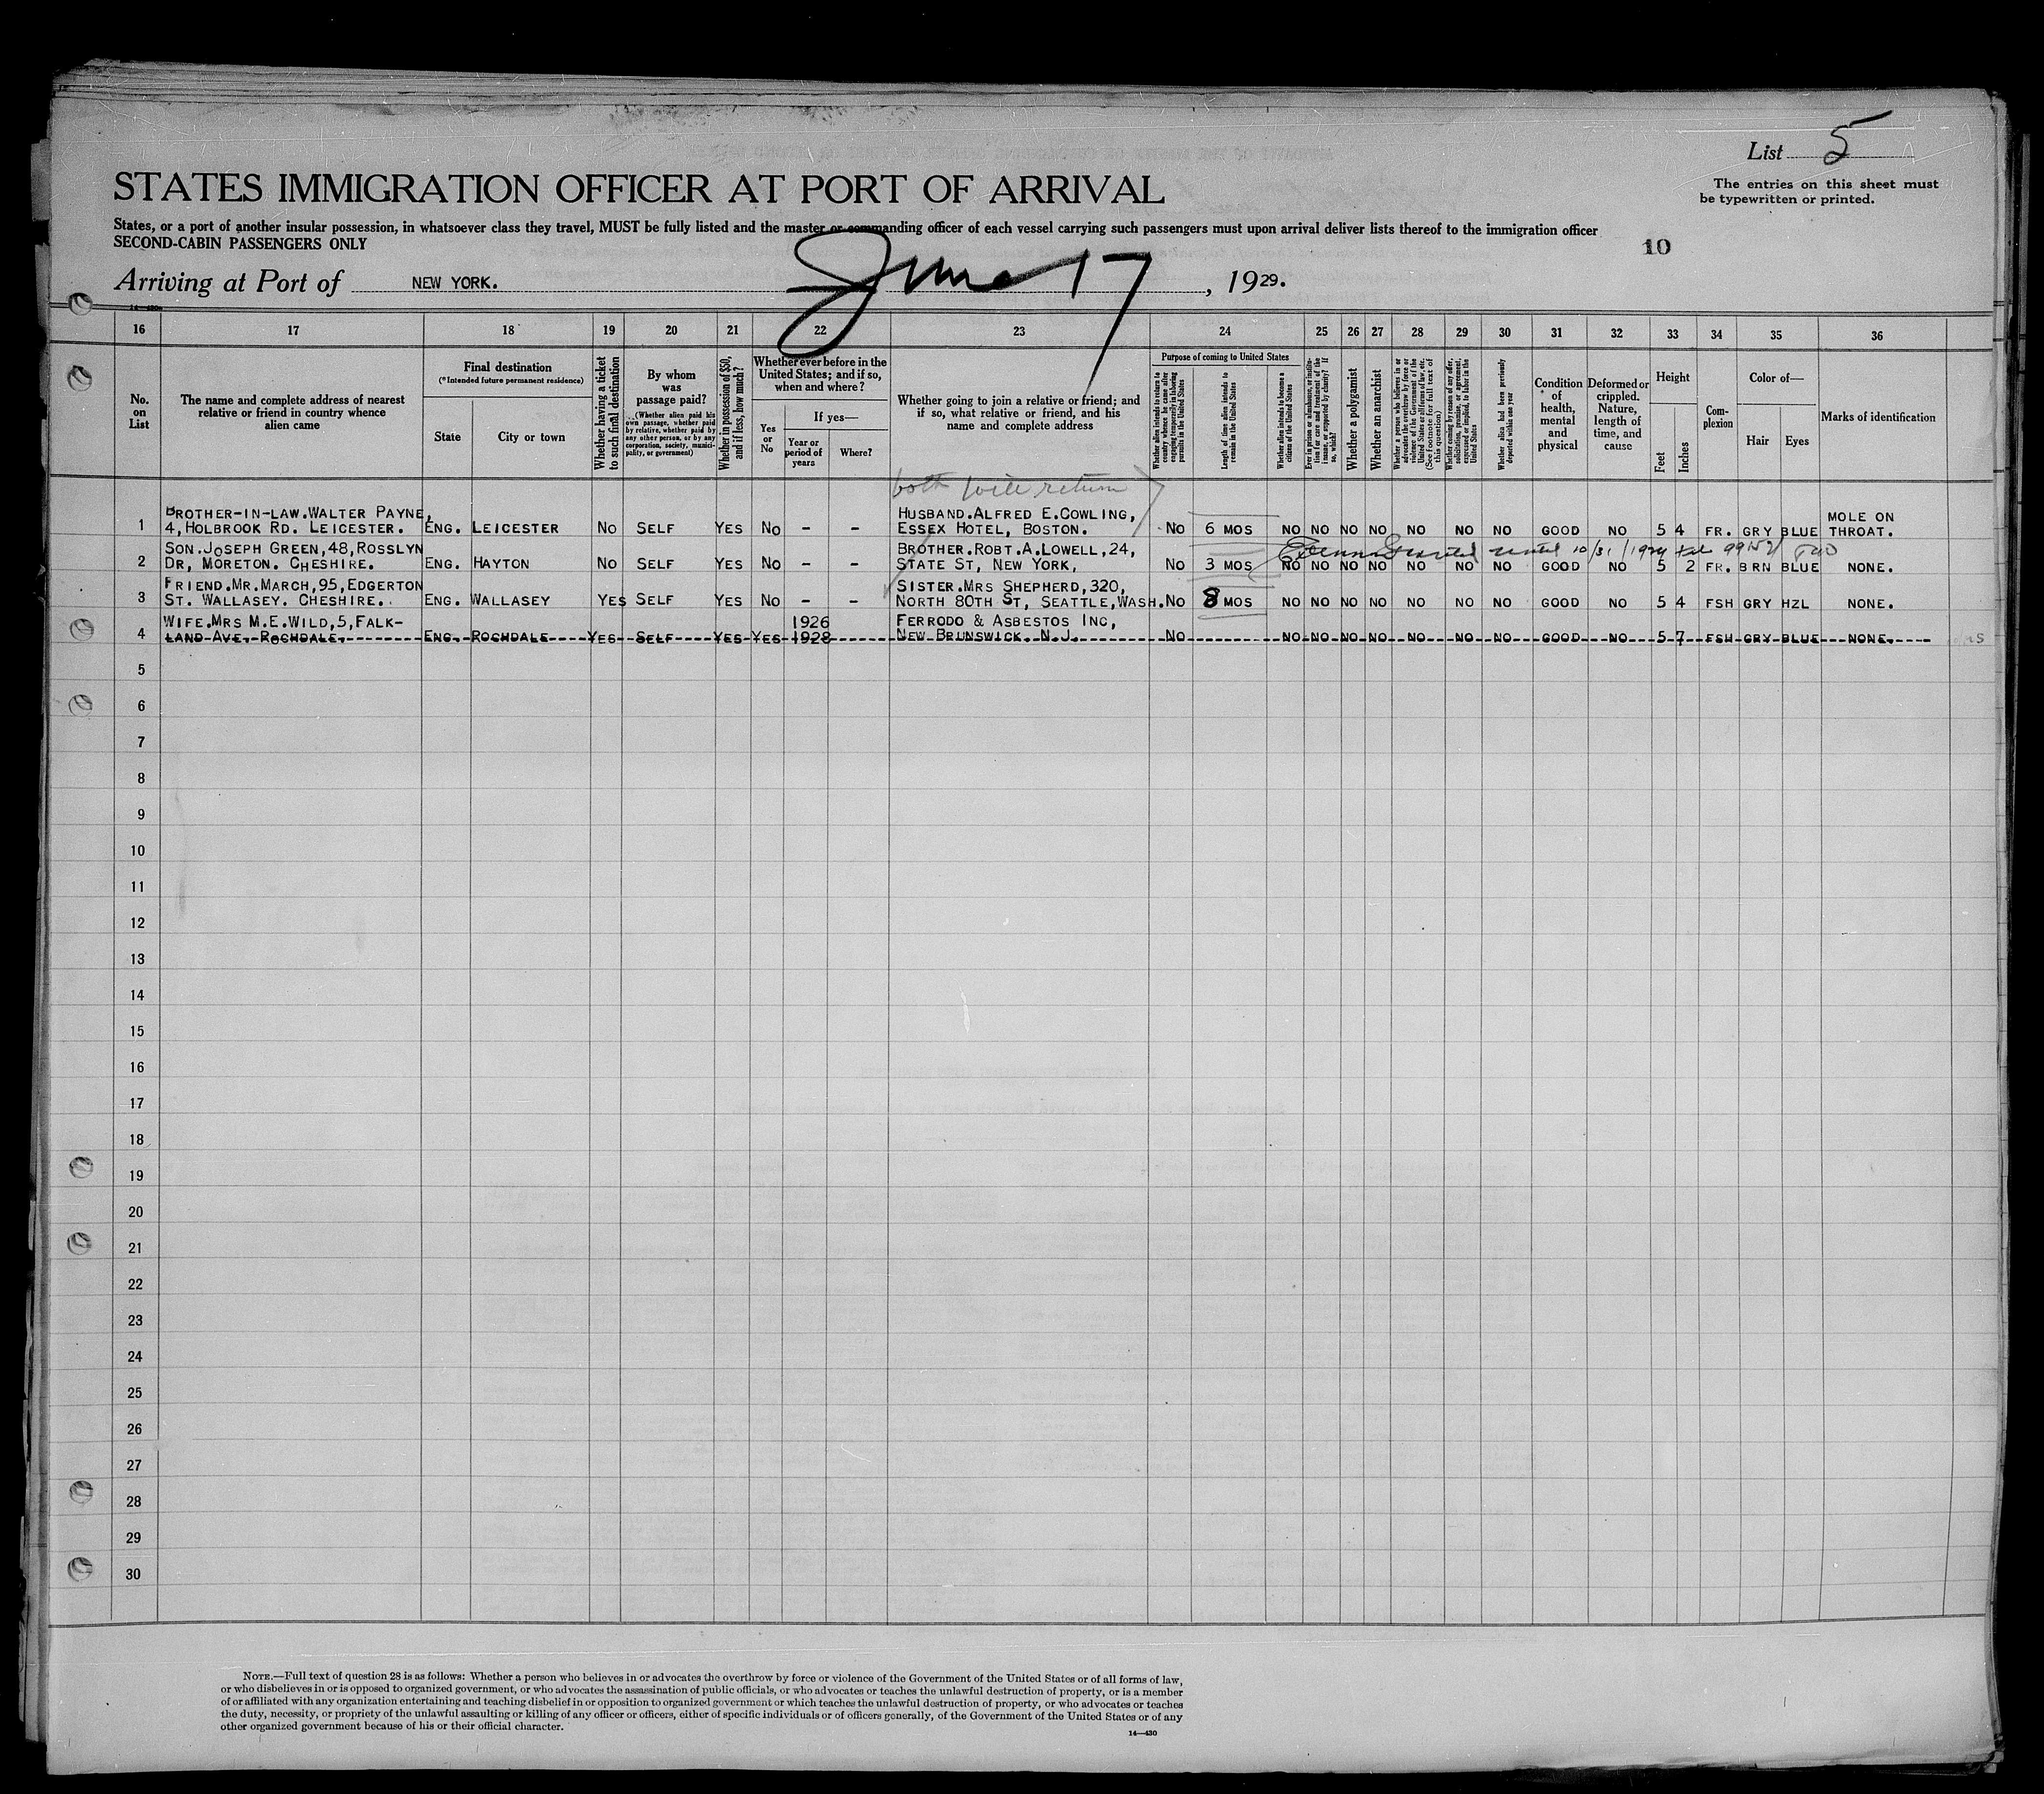 List 5
STATES IMMIGRATION OFFICER AT PORT OF ARRIVAL
The entries on this sheet must
be typewritten or printed.
States, or a port of another insular possession, in whatsoever class they travel, MUST be fully listed and the master or commanding officer of each vessel carrying such passengers must upon arrival deliver lists thereof to the immigration officer
SECOND-CABIN PASSENGERS ONLY
10
Arriving at Port of NEW YORK. June 17, 1929.
16 17 18 19 20 21 22 23 24 25 26 27 28 29 30 31 32 33 34 35 36
No. on List
The name and complete address of nearest relative or friend in country whence alien came
Final destination
(*Intended future permanent residence)
State
City or town
Whether having a ticket to such final destination
By whom was passage paid?
(Whether alien paid his own passage, whether paid by relative, whether paid by any other person, or by any corporation, society, municipality, or government)
Whether in possession of $50, and if less, how much?
Whether ever before in the United States; and if so, when and where?
Yes or No
If yes—
Year or period of years
Where?
Whether going to join a relative or friend; and if so, what relative or friend, and his name and complete address
Purpose of coming to United States
Whether alien intends to return to country whence he came after engaging temporarily in laboring pursuits in the United States
Length of time alien intends to remain in the United States
Whether alien intends to become a citizen of the United States
Ever in prison or almshouse, or institution for care and treatment of the insane, or supported by charity? If so, which?
Whether a polygamist
Whether an anarchist
Whether a person who believes in or advocates the overthrow by force or violence of the Government of the United States or all forms of law, etc. (See footnote for full text of this question)
Whether coming by reason of any offer, solicitation, promise, or agreement, expressed or implied, to labor in the United States
Whether alien had been previously deported within one year
Condition of health, mental and physical
Deformed or crippled. Nature, length of time, and cause
Height
Feet
Inches
Complexion
Color of—
Hair
Eyes
Marks of identification
both will return
BROTHER-IN-LAW.WALTER PAYNE, HUSBAND.ALFRED E.COWLING, MOLE ON
1 4,HOLBROOK RD. LEICESTER. ENG. LEICESTER NO SELF YES NO - - ESSEX HOTEL, BOSTON. NO 6 MOS NO NO NO NO NO NO NO GOOD NO 5 4 FR. GRY BLUE THROAT.
SON.JOSEPH GREEN,48,ROSSLYN BROTHER.ROBT.A.LOWELL,24, granted until 10/31/1929
2 DR, MORETON. CHESHIRE. ENG. HAYTON NO SELF YES NO - - STATE ST, NEW YORK, NO 3 MOS NO NO NO NO NO NO NO GOOD NO 5 2 FR. BRN BLUE NONE.
FRIEND.MR.MARCH,95,EDGERTON SISTER.MRS SHEPHERD,320,
3 ST. WALLASEY. CHESHIRE. ENG. WALLASEY YES SELF YES NO - - NORTH 80TH ST, SEATTLE,WASH. NO 8 MOS NO NO NO NO NO NO NO GOOD NO 5 4 FSH GRY HZL NONE.
WIFE.MRS M.E.WILD,5,FALK- 1926 FERRODO & ASBESTOS INC,
4 LAND AVE. ROCHDALE. ENG. ROCHDALE YES SELF YES YES 1928 NEW BRUNSWICK. N.J. NO NO NO NO NO NO NO NO GOOD NO 5 7 FSH GRY BLUE NONE.
5
6
7
8
9
10
11
12
13
14
15
16
17
18
19
20
21
22
23
24
25
26
27
28
29
30
NOTE.—Full text of question 28 is as follows: Whether a person who believes in or advocates the overthrow by force or violence of the Government of the United States or of all forms of law,
or who disbelieves in or is opposed to organized government, or who advocates the assassination of public officials, or who advocates or teaches the unlawful destruction of property, or is a member
of or affiliated with any organization entertaining and teaching disbelief in or opposition to organized government or which teaches the unlawful destruction of property, or who advocates or teaches
the duty, necessity, or propriety of the unlawful assaulting or killing of any officer or officers, either of specific individuals or of officers generally, of the Government of the United States or of any
other organized government because of his or their official character.
14—430